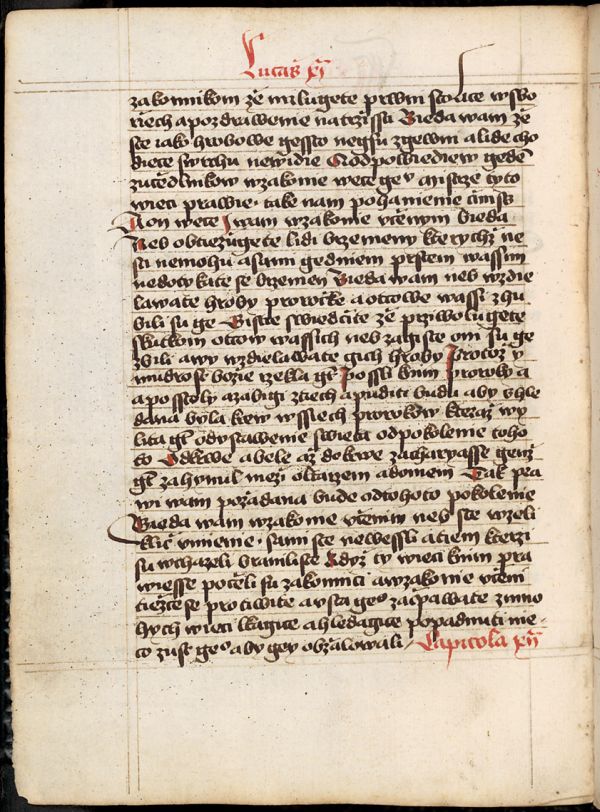 Lucas xi
zakonnikom že miługete prwni stolce w sbo
riech a pozdrawenie na tržissti Bieda wam že
ste iako hrobowe gessto negsu zgewni a lide cho
diece swrchu newidie Odpowiediew geden
z učedlnikow w zakonie wece geu mistrze tyto
wieci prawie take nam pohanienie činiss
A on wece I wam w zakonie učenym bieda
Neb obtiežugete lidi brzemeny kterychž ne
su nemohu a sami gedniem prstem wassim
nedotykate se brzemen Bieda wam neb wzdie
lawate hroby prorocke a ottcowe wassi zhu
bili su ge Biste swiedčite že prziwolugete
skutkom ottcow wassich neb zagiste oni su ge
zbili a wy wzdielawate gich hroby Protož y
mudrost božie rzekla gt Possli k nim proroky a
aposstoly a zabigi z tiech a puditi budu aby ohle
dana byla krew wssiech prorokow kteraž wy
lita gt od ystawenie swieta od pokolenie toho
to Od krwe abele až do krwe zacharyasse genž
gt zahynul mezi oltarzem a domem Tak pra
wi wam požadana bude od tohoto pokolenie
Bieda wam w zakonie učenim neb ste wzeli
klič umienie sami ste newessli a tiem kterzi
su wchazeli branili ste Když ty wieci k nim pra
wiesse počeli su zakonnici a w zakonie učeni
tiežce se protiwiti a usta geo zacpawati z mno
hych wieci lkagice a hledagice popadnuti nie-
co z ust geo aby gey obžalowali Capitola xii